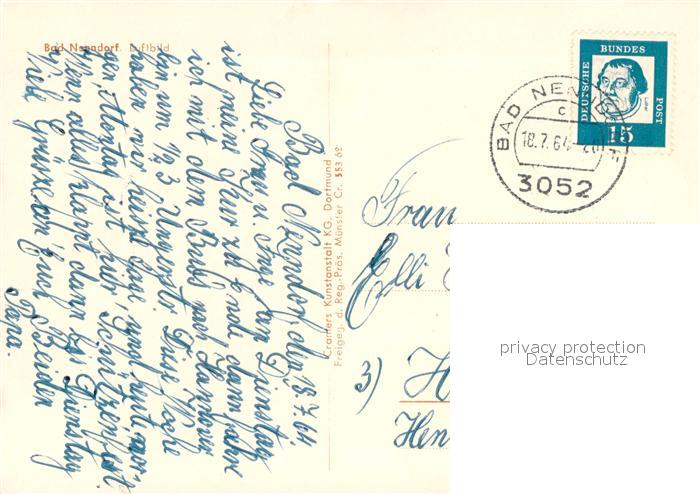 Bad Nenndorf. Luftbild
Bad Nenndorf den 18.7.64.
Liebe Frau u. Ima am Dienstag
ist meine Kur zu Ende dann fahre
ich mit dem Bus nach Hannover
bin um 1/2 3 Uhr Diese Woche
haben wir heute und mor-
gen Montag ist hier Schützenfest.
Wenn alles klappt dann bis Dienstag
Viele Grüsse an Euch Beiden
Papa.
Cramers Kunstanstalt KG, Dortmund
Freigeg. d. Reg.-Präs. Münster Cr. 553 62
DEUTSCHE BUNDES POST
Luther
15
BAD NENNDORF
c
18.7.64-20
3052
Frau
Elli
3) H
Hen
privacy protection
Datenschutz